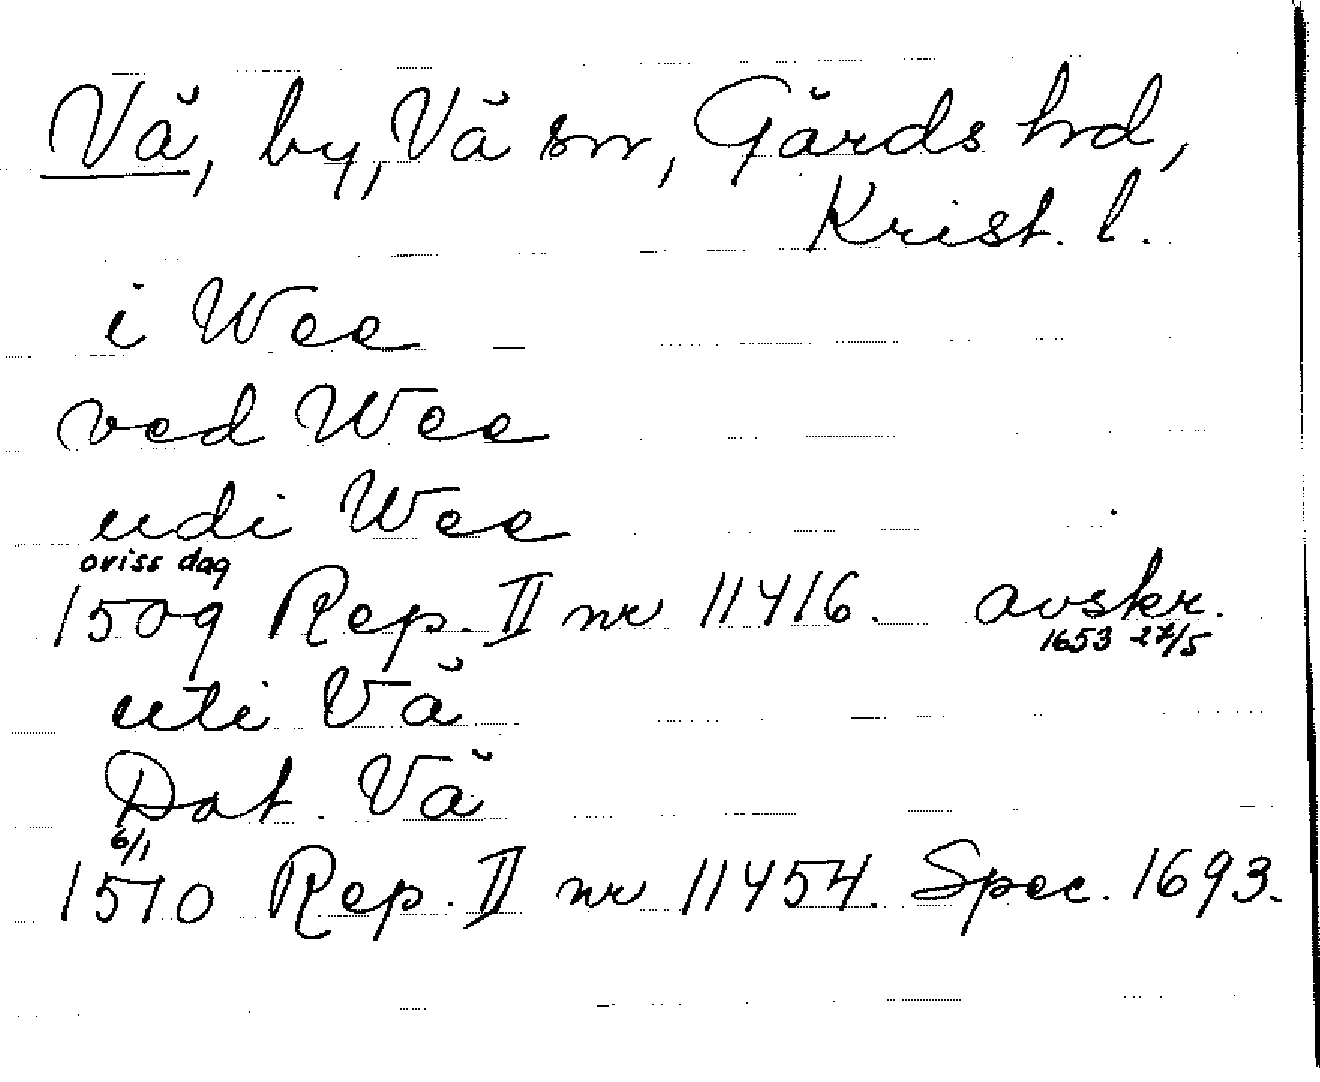 Vă, by, Vă sn, Gărds hd,
Krist. l.
i Wee
ved Wee
udi Wee
oviss dag
1509 Rep. II nr 11416. avskr.
1653 27/5
uti Vă
Dat. Vă
6/1
1510 Rep. II nr 11454. Spec. 1693.